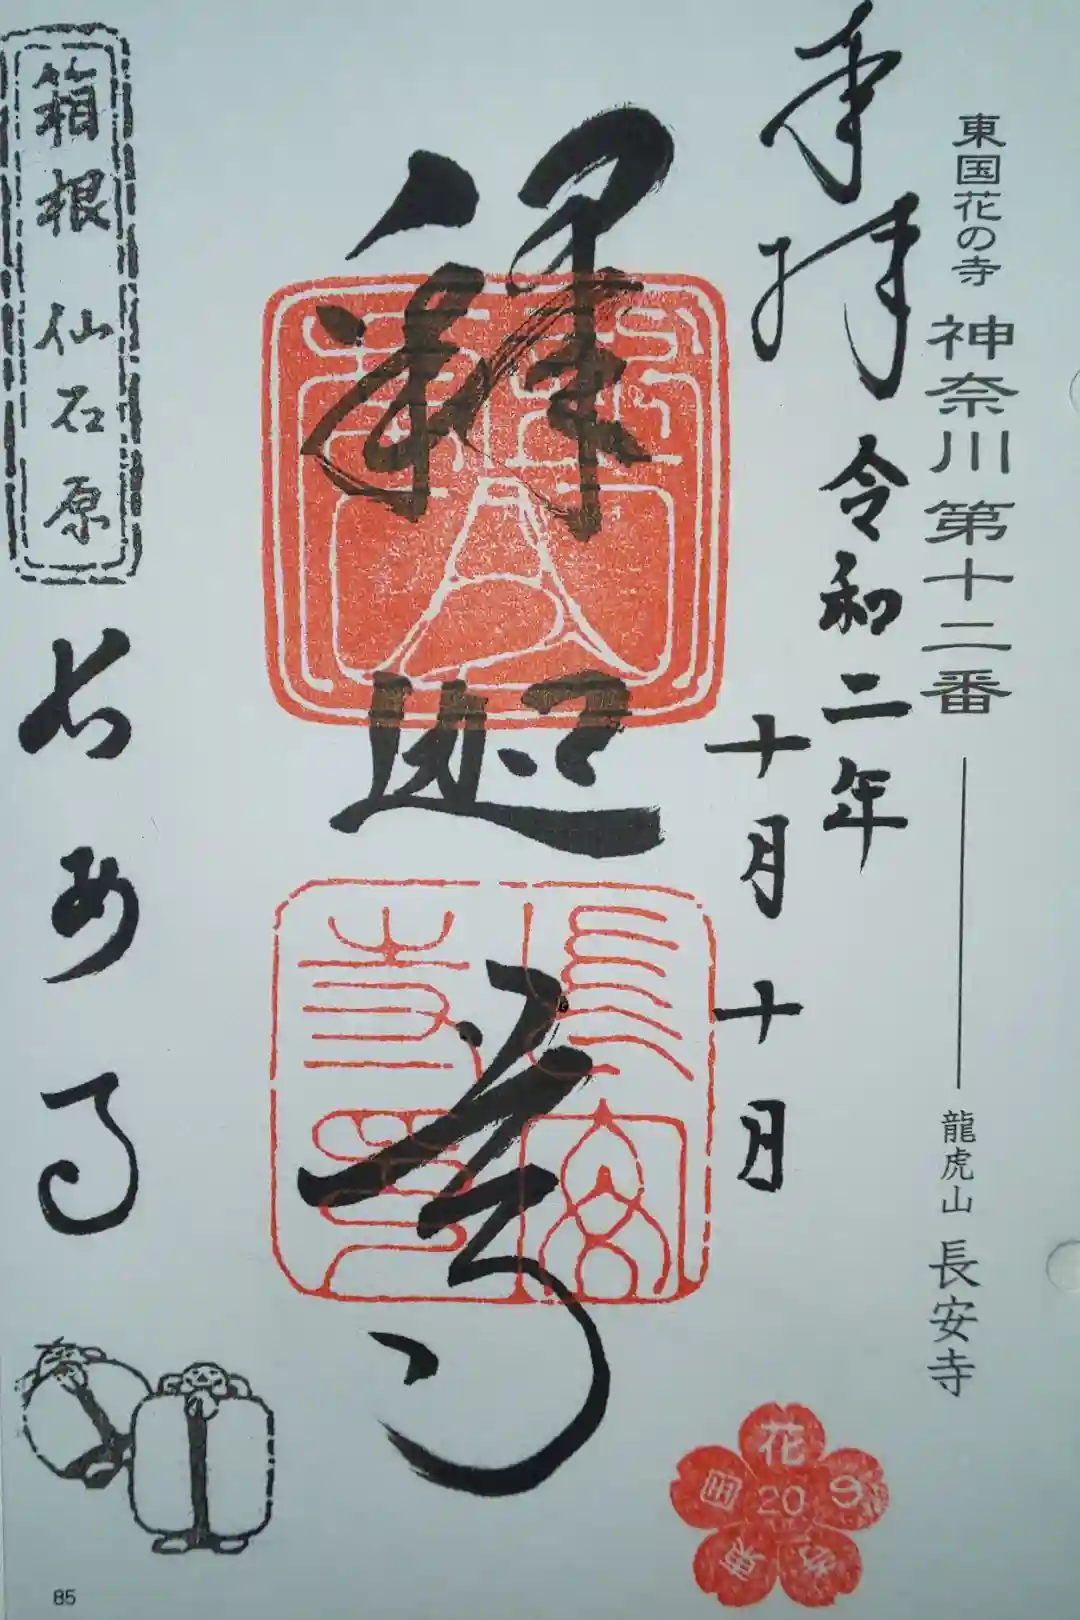 東国花の寺 神奈川第十二番 龍虎山 長安寺
奉拝 令和二年
十月十日
釋迦尊
長安
寺印
箱根 仙石原
長安寺
東国花の寺
20
85